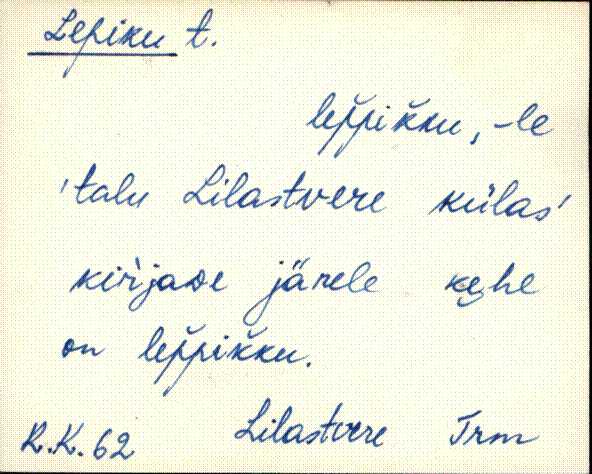 Lepiku t.
lep̌pik̆ku, -le
'talu Lilastvere külas'
kiŕjade järele kęhe
on lep̌pik̆ku.
R.K. 62 Lilastvere Trm